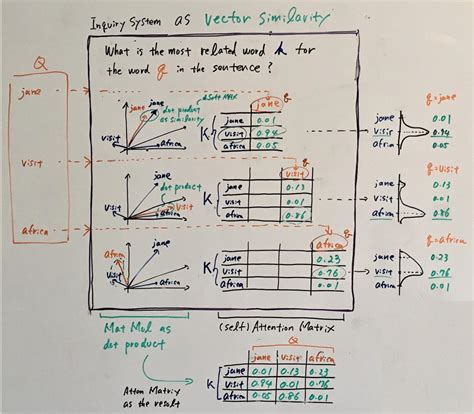 Inquiry System as vector similarity
What is the most related word k for
the word q in the sentence?
Q
jane
visit
africa
jane
jane
visit
africa
dot product
as similarity
& Soft MAX
q
jane
K
jane 0.01
visit 0.94
africa 0.05
q=jane
jane 0.01
visit 0.94
africa 0.05
dot product
jane
visit
visit
africa
q
visit
K
jane 0.13
visit 0.01
africa 0.86
q=visit
jane 0.13
visit 0.01
africa 0.86
africa
jane
visit
africa
q
africa
K
jane 0.23
visit 0.76
africa 0.01
q=africa
jane 0.23
visit 0.76
africa 0.01
Mat Mul as
dot product
(self) Attention Matrix
Atten Matrix
as the result
Q
jane visit africa
K
jane 0.01 0.13 0.23
visit 0.94 0.01 0.76
africa 0.05 0.86 0.01